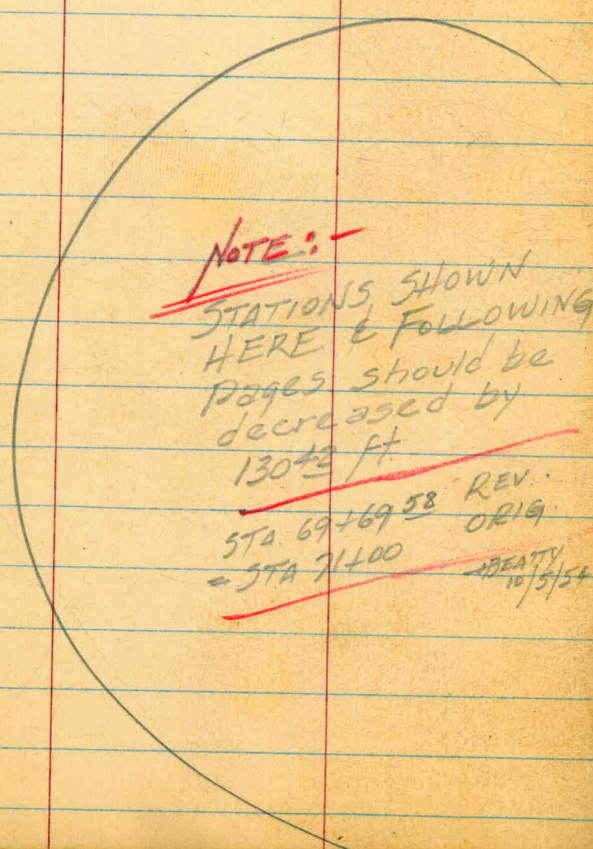 NOTE:-
STATIONS SHOWN
HERE & FOLLOWING
pages should be
decreased by
130 42 ft.
STA. 69+69 58 REV.
= STA 71+00 ORIG.
BEATTY
10/5/54